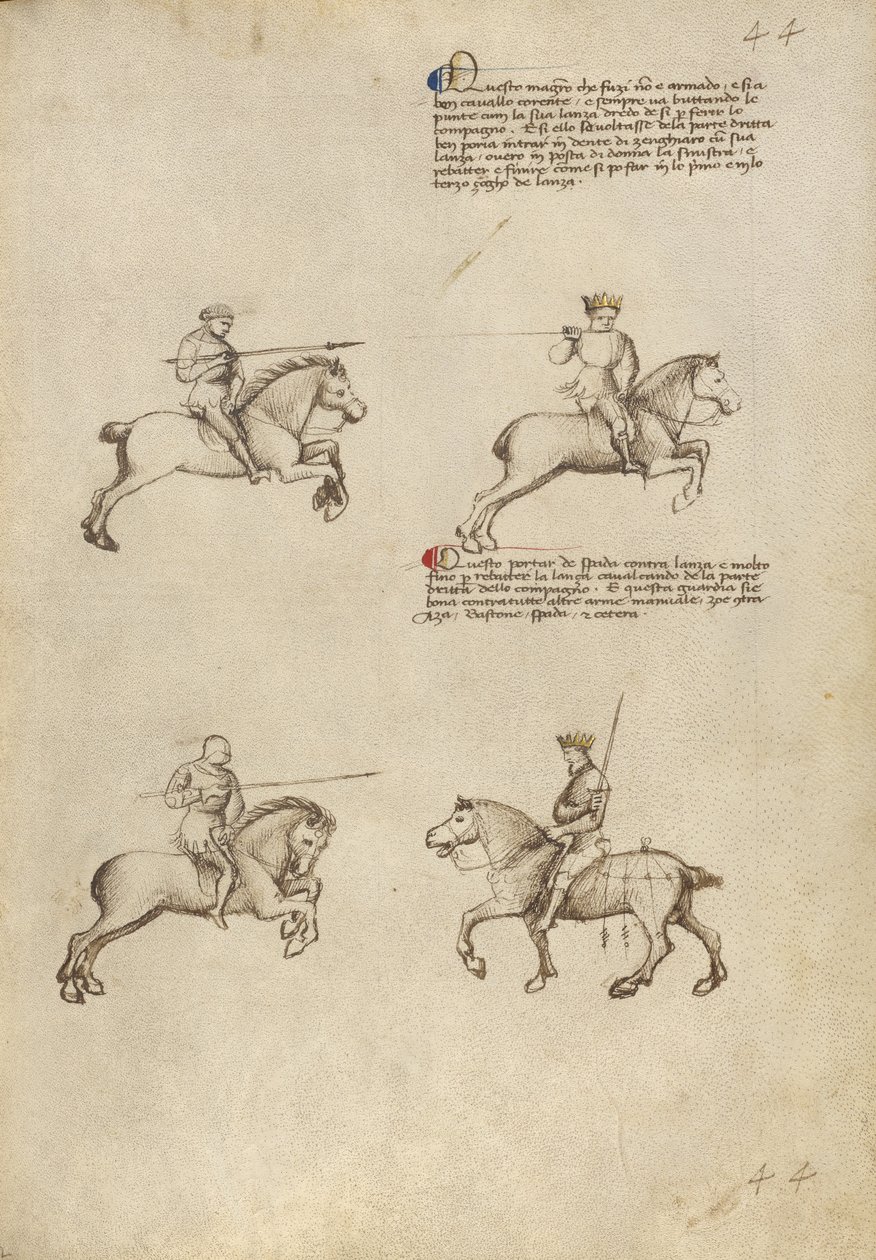 44
Questo magro che fuzi no e armado, e si a
bon cavallo corente, e sempre va buttando le
punte cum la sua lanza dredo de si p ferir lo
compagno. E si ello se voltasse dela parte dritta
ben poria intrar in dente di zenghiaro cu sua
lanza, overo in posta di donna la sinistra, e
rebatter e finire come si po far in lo p̃mo e in lo
terzo zogho de lanza.
Questo portar de spada contra lanza e molto
fino p rebatter la lanza cavalcando de la parte
dritta dello compagno. E questa guardia si e
bona contra tutte altre arme manuale, zoe
Aza, Bastone, spada, & cetera.
44